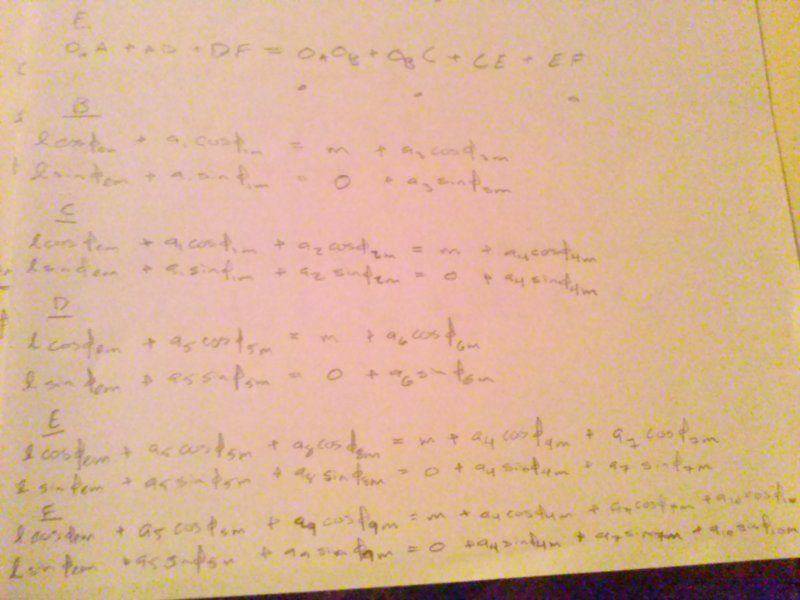 E
O_A A + AD + DF = O_A O_B + O_B C + CE + EF
B
l cosϕ_lm + a_1 cosϕ_1m = m + a_3 cosϕ_3m
l sinϕ_lm + a_1 sinϕ_1m = 0 + a_3 sinϕ_3m
C
l cosϕ_lm + a_1 cosϕ_1m + a_2 cosϕ_2m = m + a_4 cosϕ_4m
l sinϕ_lm + a_1 sinϕ_1m + a_2 sinϕ_2m = 0 + a_4 sinϕ_4m
D
l cosϕ_lm + a_5 cosϕ_5m = m + a_6 cosϕ_6m
l sinϕ_lm + a_5 sinϕ_5m = 0 + a_6 sinϕ_6m
E
l cosϕ_lm + a_5 cosϕ_5m + a_8 cosϕ_8m = m + a_4 cosϕ_4m + a_7 cosϕ_7m
l sinϕ_lm + a_5 sinϕ_5m + a_8 sinϕ_8m = 0 + a_4 sinϕ_4m + a_7 sinϕ_7m
F
l cosϕ_lm + a_5 cosϕ_5m + a_9 cosϕ_9m = m + a_4 cosϕ_4m + a_7 cosϕ_7m + a_10 cosϕ_10
l sinϕ_lm + a_5 sinϕ_5m + a_9 sinϕ_9m = 0 + a_4 sinϕ_4m + a_7 sinϕ_7m + a_10 sinϕ_10m